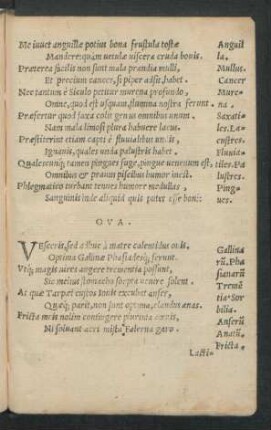 Me iuuet anguillæ potius bona frustula tostæ
Mandere: quàm vetulæ viscera cruda bouis.
Præterea facilis non sunt mala prandia mulli,
Et precium cancer, si piper adsit, habet.
Nec tantum è Siculo petitur muræna profundo,
Omne, quod est usquam, flumina nostra ferunt.
Præfertur quod saxa colit genus omnibus unum.
Nam mala limosi plura habuere lacus.
Præstiterint etiam capti è fluuialibus undis,
Ignauis, quales unda palustris habet.
Qualescunque tamen pingues fuge, pingue venenum est,
Omnibus & prauus piscibus humor inest.
Phlegmatico turbant tenues humore medullas,
Sanguinis inde aliquid quis putet esse boni:
Anguilla.
Mullus.
Cancer
Muræna.
Saxatiles. Lacustres.
Fluuiatiles. Palustres.
Pingues.
OVA.
Vescere, sed adhuc à matre calentibus ouis,
Optima Gallinæ Phasiadesque ferunt.
Utque magis uires augere trementia possunt,
Sic melius stomacho sorpta uenire solent.
At quæ Tarpei custos Iouis excubat anser,
Quæque parit, non sunt optima, clandus anas.
Fricta mihi nolim contingere plurima ouis,
Ni soluant acri mista Falerna garo.
Gallinarũ. Phasianarũ
Trementia Sorbilia.
Anserũ
Anatũ.
Fricta.
Lacti-